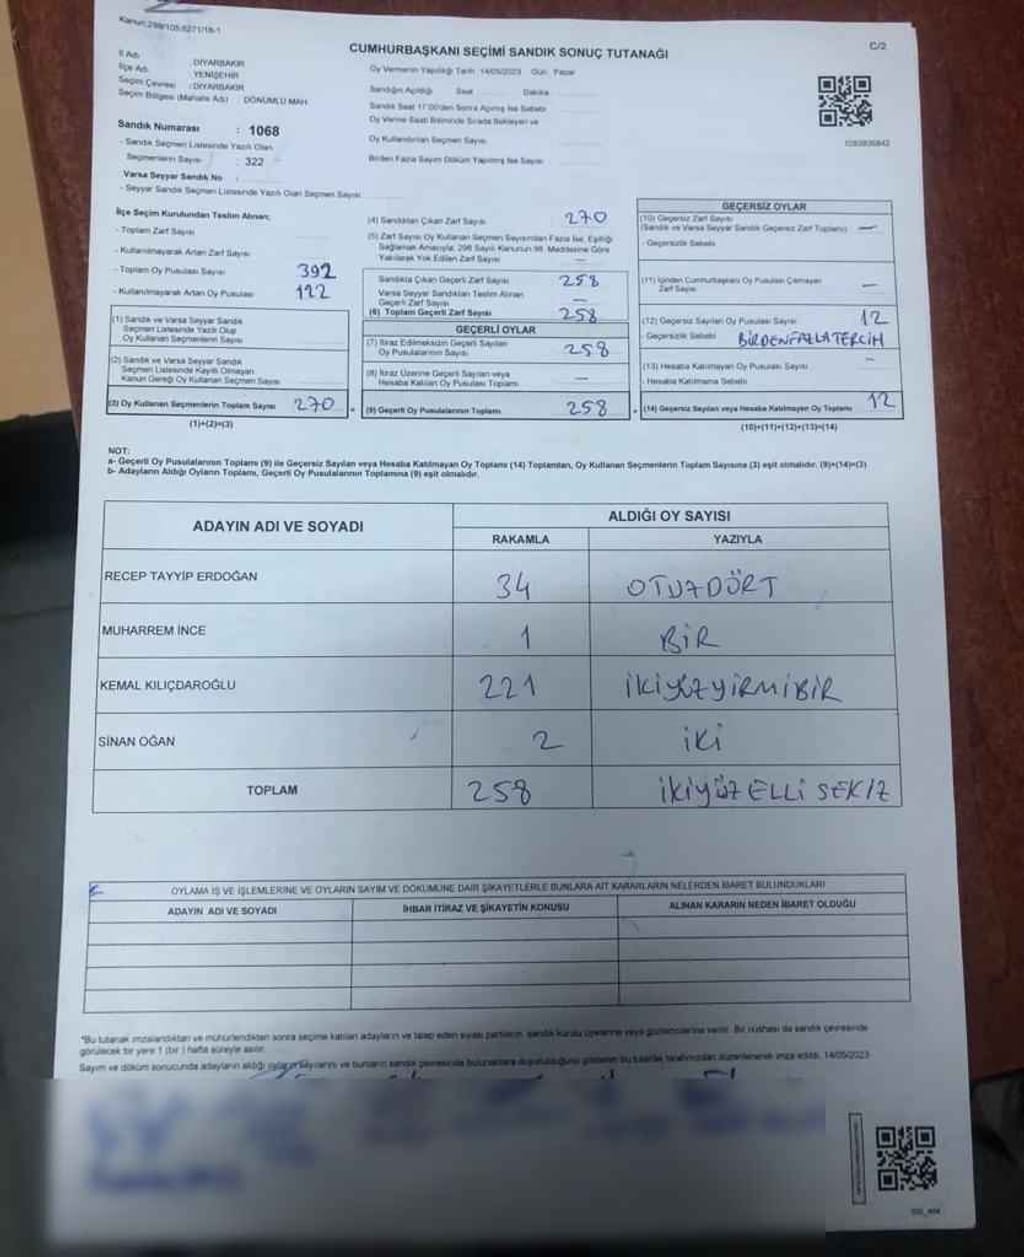 Kanun:298/105,6271/18-1
CUMHURBAŞKANI SEÇİMİ SANDIK SONUÇ TUTANAĞI
C/2
İl Adı : DİYARBAKIR
İlçe Adı : YENİŞEHİR
Seçim Çevresi : DİYARBAKIR
Seçim Bölgesi (Mahalle Adı) : DÖNÜMLÜ MAH.
Sandık Numarası : 1068
- Sandık Seçmen Listesinde Yazılı Olan
Seçmenlerin Sayısı : 322
Varsa Seyyar Sandık No :
- Seyyar Sandık Seçmen Listesinde Yazılı Olan Seçmen Sayısı
Oy Vermenin Yapıldığı Tarih: 14/05/2023 Gün: Pazar
Sandığın Açıldığı Saat Dakika
Sandık Saat 17:00'den Sonra Açılmış İse Sebebi
Oy Verme Saati Bitiminde Sırada Bekleyen ve
Oy Kullandırılan Seçmen Sayısı
Birden Fazla Sayım Döküm Yapılmış İse Sayısı
İlçe Seçim Kurulundan Teslim Alınan;
- Toplam Zarf Sayısı
- Kullanılmayarak Artan Zarf Sayısı
- Toplam Oy Pusulası Sayısı 392
- Kullanılmayarak Artan Oy Pusulası 122
(1) Sandık ve Varsa Seyyar Sandık
Seçmen Listesinde Yazılı Olup
Oy Kullanan Seçmenlerin Sayısı
(2) Sandık ve Varsa Seyyar Sandık
Seçmen Listesinde Kayıtlı Olmayan
Kanun Gereği Oy Kullanan Seçmen Sayısı
(3) Oy Kullanan Seçmenlerin Toplam Sayısı 270
(1)+(2)=(3)
(4) Sandıktan Çıkan Zarf Sayısı 270
(5) Zarf Sayısı Oy Kullanan Seçmen Sayısından Fazla İse, Eşitliği
Sağlamak Amacıyla; 298 Sayılı Kanunun 98. Maddesine Göre
Yakılarak Yok Edilen Zarf Sayısı —
Sandıkta Çıkan Geçerli Zarf Sayısı 258
Varsa Seyyar Sandıktan Teslim Alınan
Geçerli Zarf Sayısı —
(6) Toplam Geçerli Zarf Sayısı 258
GEÇERLİ OYLAR
(7) İtiraz Edilmeksizin Geçerli Sayılan
Oy Pusulalarının Sayısı 258
(8) İtiraz Üzerine Geçerli Sayılan veya
Hesaba Katılan Oy Pusulası Toplamı —
(9) Geçerli Oy Pusulalarının Toplamı 258
GEÇERSİZ OYLAR
(10) Geçersiz Zarf Sayısı
(Sandık ve Varsa Seyyar Sandık Geçersiz Zarf Toplamı) —
- Geçersizlik Sebebi
(11) İçinden Cumhurbaşkanı Oy Pusulası Çıkmayan
Zarf Sayısı —
(12) Geçersiz Sayılan Oy Pusulası Sayısı 12
- Geçersizlik Sebebi BİRDENFAZLATERCİH
(13) Hesaba Katılmayan Oy Pusulası Sayısı —
- Hesaba Katılmama Sebebi
(14) Geçersiz Sayılan veya Hesaba Katılmayan Oy Toplamı 12
(10)+(11)+(12)+(13)=(14)
NOT:
a- Geçerli Oy Pusulalarının Toplamı (9) ile Geçersiz Sayılan veya Hesaba Katılmayan Oy Toplamı (14) Toplamları, Oy Kullanan Seçmenlerin Toplam Sayısına (3) eşit olmalıdır. (9)+(14)=(3)
b- Adayların Aldığı Oyların Toplamı, Geçerli Oy Pusulalarının Toplamına (9) eşit olmalıdır.
ADAYIN ADI VE SOYADI ALDIĞI OY SAYISI
RAKAMLA YAZIYLA
RECEP TAYYİP ERDOĞAN 34 OTUZDÖRT
MUHARREM İNCE 1 BİR
KEMAL KILIÇDAROĞLU 221 İKİYÜZYİRMİBİR
SİNAN OĞAN 2 İKİ
TOPLAM 258 İKİYÜZ ELLİ SEKİZ
OYLAMA İŞ VE İŞLEMLERİNE VE OYLARIN SAYIM VE DÖKÜMÜNE DAİR ŞİKAYETLERLE BUNLARA AİT KARARLARIN NELERDEN İBARET BULUNDUKLARI
ADAYIN ADI VE SOYADI İHBAR İTİRAZ VE ŞİKAYETİN KONUSU ALINAN KARARIN NEDEN İBARET OLDUĞU
*Bu tutanak imzalandıktan ve mühürlendikten sonra seçime katılan adayların ve talep eden siyasi partilerin, sandık kurulu üyelerine veya gözlemcilerine verilir. Bir nüshası da sandık çevresinde
görülecek bir yere 1 (bir) hafta süreyle asılır.
Sayım ve döküm sonucunda adayların aldığı oyların sayılarını ve bunların sandık çevresinde bulunanlara duyurulduğunu gösteren bu tutanak tarafımızdan düzenlenerek imza edildi. 14/05/2023